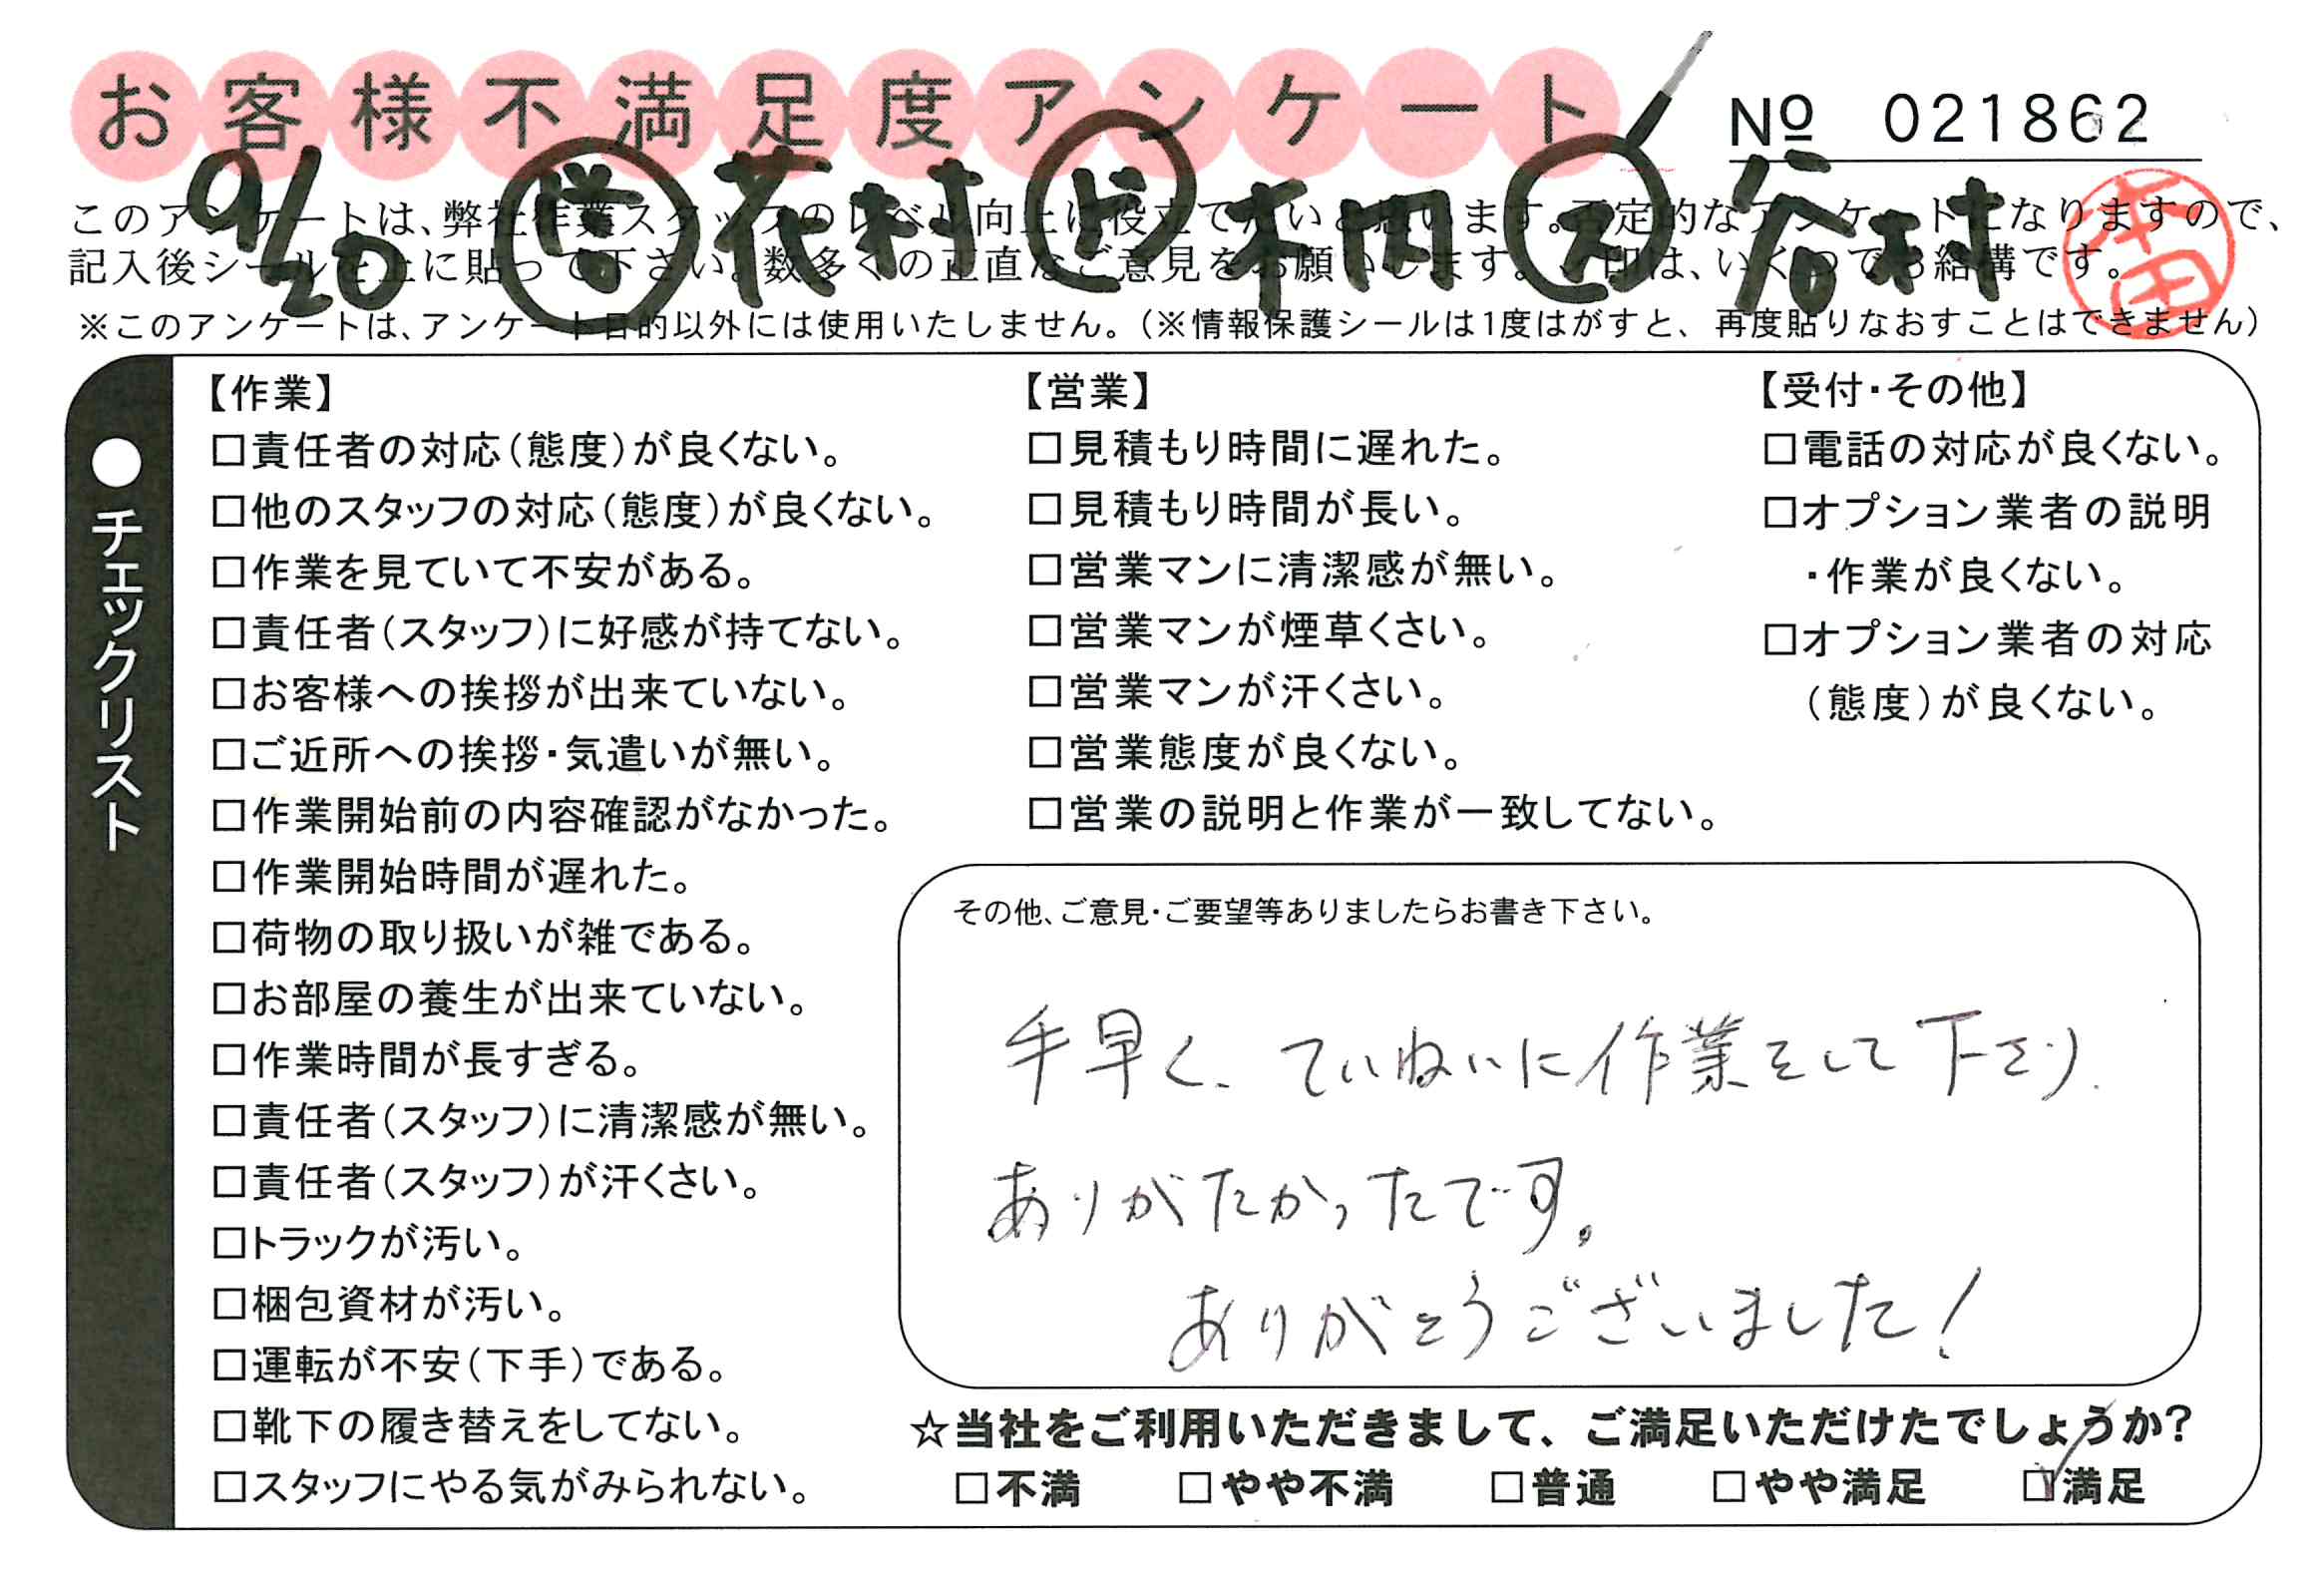 お客様不満足度アンケート
№ 021862
9/20 営 花村 ド 本田 ス 谷村
このアンケートは、弊社作業スタッフのレベル向上に役立てたいと思います。否定的なアンケートになりますので、
記入後シールを上に貼って下さい。数多くの正直なご意見をお願いします。 印は、いくつでも結構です。
※このアンケートは、アンケート目的以外には使用いたしません。(※情報保護シールは1度はがすと、再度貼りなおすことはできません)
●チェックリスト
【作業】
□責任者の対応(態度)が良くない。
□他のスタッフの対応(態度)が良くない。
□作業を見ていて不安がある。
□責任者(スタッフ)に好感が持てない。
□お客様への挨拶が出来ていない。
□ご近所への挨拶・気遣いが無い。
□作業開始前の内容確認がなかった。
□作業開始時間が遅れた。
□荷物の取り扱いが雑である。
□お部屋の養生が出来ていない。
□作業時間が長すぎる。
□責任者(スタッフ)に清潔感が無い。
□責任者(スタッフ)が汗くさい。
□トラックが汚い。
□梱包資材が汚い。
□運転が不安(下手)である。
□靴下の履き替えをしてない。
□スタッフにやる気がみられない。
【営業】
□見積もり時間に遅れた。
□見積もり時間が長い。
□営業マンに清潔感が無い。
□営業マンが煙草くさい。
□営業マンが汗くさい。
□営業態度が良くない。
□営業の説明と作業が一致してない。
【受付・その他】
□電話の対応が良くない。
□オプション業者の説明
・作業が良くない。
□オプション業者の対応
(態度)が良くない。
その他、ご意見・ご要望等ありましたらお書き下さい。
手早く、ていねいに作業をして下さり、
ありがたかったです。
ありがとうございました!
☆当社をご利用いただきまして、ご満足いただけたでしょうか?
□不満 □やや不満 □普通 □やや満足 ☑満足